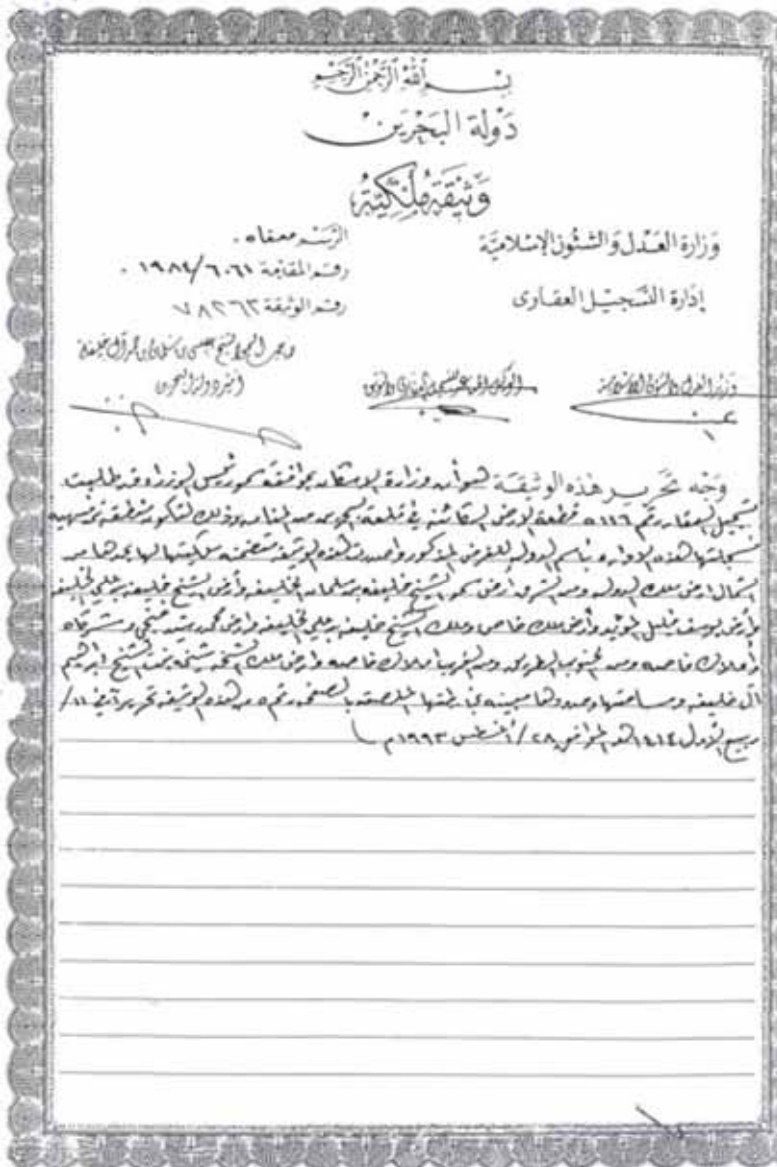 بسم الله الرحمن الرحيم
دولة البحرين
وثيقة ملكية
وزارة العدل والشئون الإسلامية
الرسم معفاه.
إدارة التسجيل العقارى
رقم المقدمة ٦٠٦١/١٩٨٤.
رقم الوثيقة ٧٨٢٦٣
آل خليفة
أمير دولة البحرين
وزير العدل والشئون الإسلامية
وجه تحرير هذه الوثيقة هو أن وزارة الإسكان بموافقة سمو رئيس الوزراء قد طلبت
تسجيل العقار رقم ٥١١٦ قطعة الأرض الكائنة في قلعة البحرين من المنامة وذلك لتكون منطقة
سجلتها هذه الإدارة باسم الدولة للغرض المذكور وأصدرت لهذه الوثيقة متضمنة ملكيتها لها يحدها من
الشمال أرض ملك الدولة ومن الشرق أرض سمو الشيخ خليفة بن سلمان الخليفة وأرض الشيخ خليفة بن علي الخليفة
وأرض يوسف خليل المؤيد وأرض ملك خاص وملك الشيخ خليفة بن علي الخليفة وأرض محمد وشركاه
وأملاك خاصة ومن الجنوب الطريق ومن الغرب أملاك خاصة وأرض ملك الشيخة شيخة بنت الشيخ ابراهيم
آل خليفة ومساحتها وحدودها مبينة في خارطتها الملصقة بالصفحة رقم ٥ من هذه الوثيقة تحريرا في ١١/
ربيع الأول ١٤١٤هـ الموافق ٢٨/أغسطس ١٩٩٣م